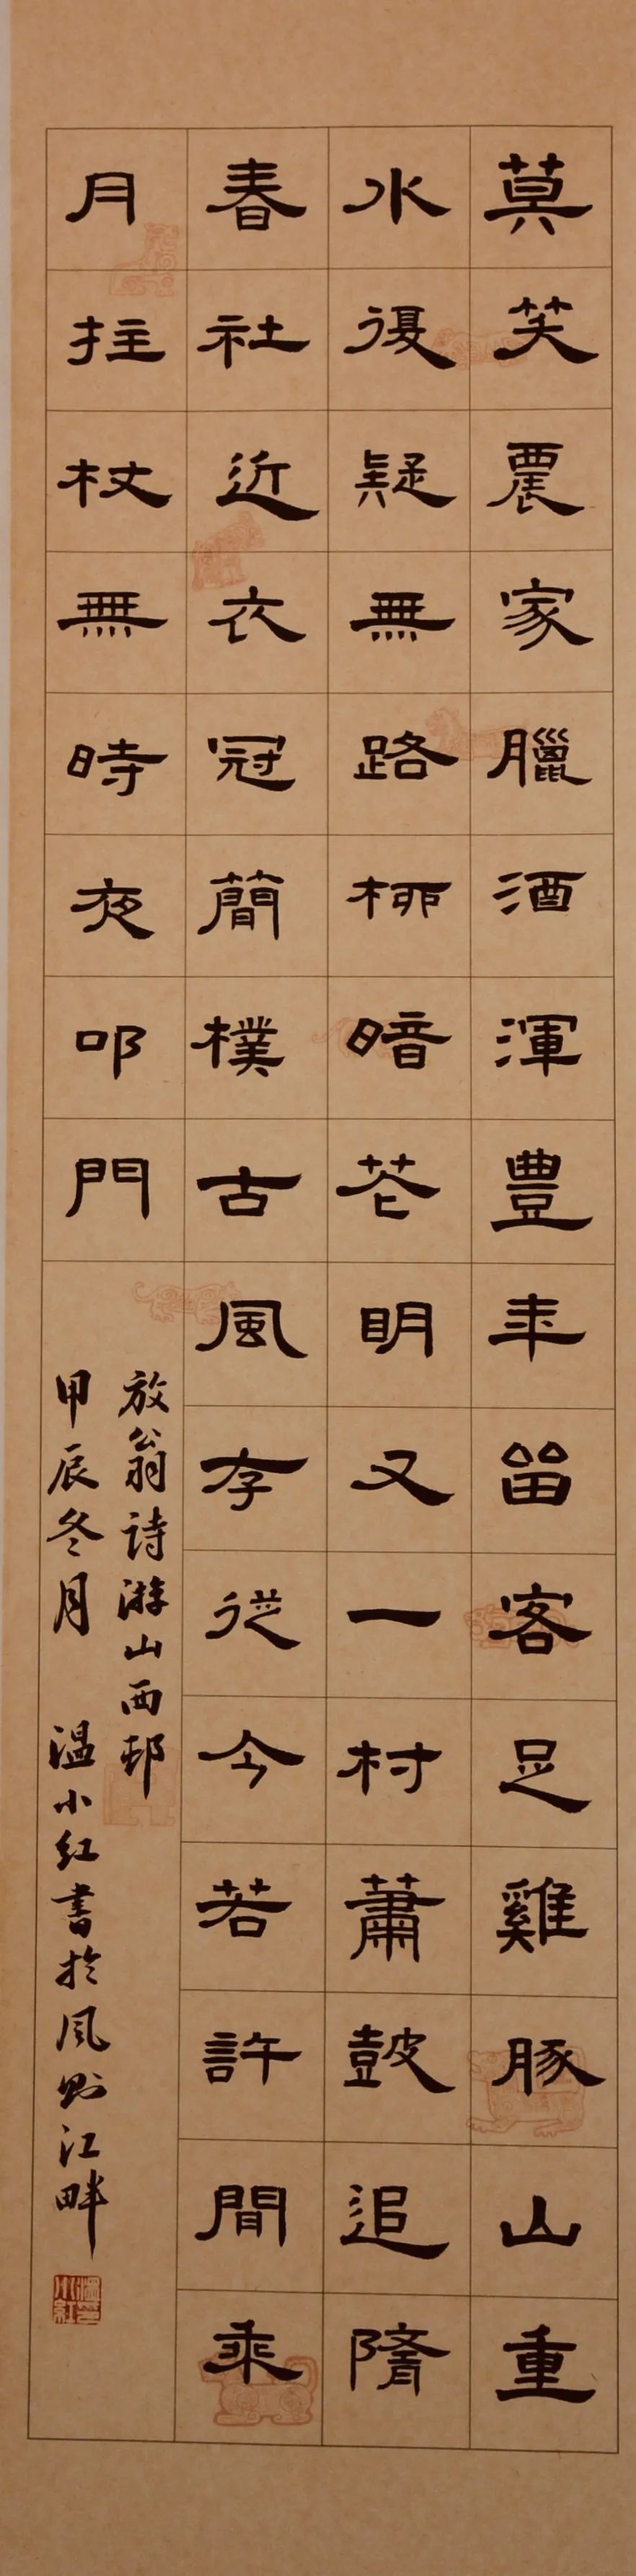 莫笑農家臘酒渾豐年留客足雞豚山重
水復疑無路柳暗花明又一村蕭鼓追隨
春社近衣冠簡樸古風存從今若許閒乘
月拄杖無時夜叩門
放翁诗游山西邨
甲辰冬月 温小红書於風则江畔